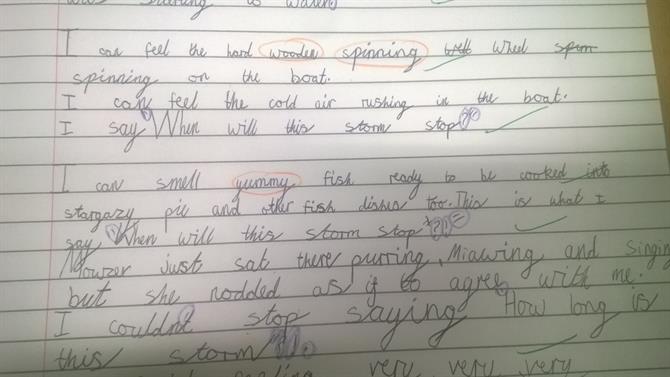 was starting to
I can feel the hard wooden spinning wheel spinning on the boat.
I can feel the cold air rushing in the boat.
I say "When will this storm stop?"
I can smell yummy fish ready to be cooked into
stargazy pie and other fish dishes too. This is what I
say "When will this storm stop?"
Mowzer just sat there purring, Miawing and singin
but she nodded as if to agree with me.
I couldn't stop saying "How long is
this storm"?
very, very, very